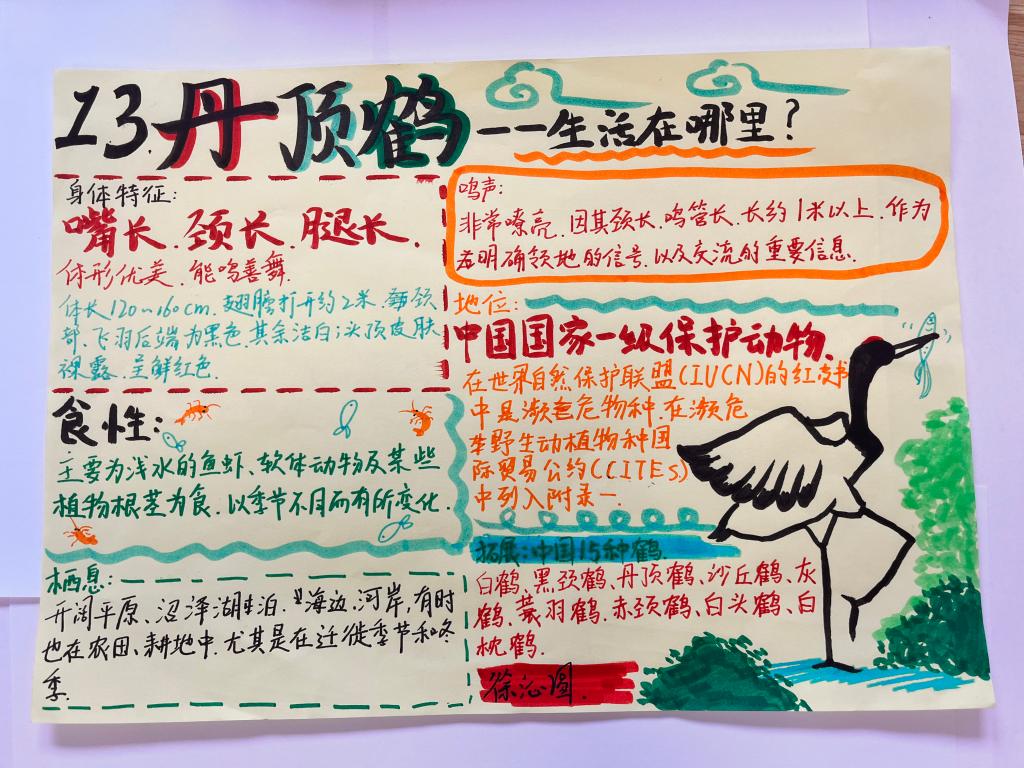 13.丹顶鹤——生活在哪里？
身体特征:
嘴长.颈长.腿长.
体形优美.能鸣善舞.
体长120~160cm.翅膀打开约2米.颈
部、飞羽后端为黑色.其余洁白;头顶皮肤
裸露.呈鲜红色.
鸣声:
非常嘹亮.因其颈长.鸣管长.长约1米以上.作为
明确领地的信号.以及交流的重要信息.
地位:
中国国家一级保护动物.
在世界自然保护联盟(IUCN)的红皮书
中是濒危物种.在濒危
野生动植物种国
际贸易公约(CCITEs)
中列入附录一.
食性:
主要为浅水的鱼虾、软体动物及某些
植物根茎为食.以季节不同而有所变化.
栖息:
开阔平原、沼泽湖泊.海边.河岸,有时
也在农田、耕地中.尤其是在迁徙季节和冬
季.
拓展:中国15种鹤.
白鹤、黑颈鹤、丹顶鹤、沙丘鹤、灰
鹤、蓑羽鹤、赤颈鹤、白头鹤、白
枕鹤.
徐沁圆.